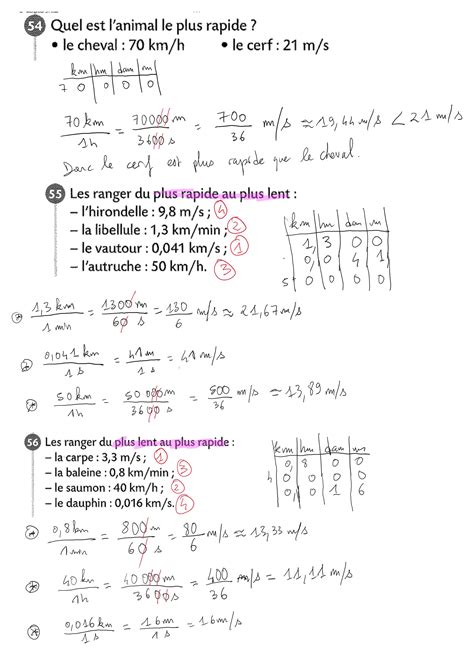 54 Quel est l'animal le plus rapide ?
• le cheval : 70 km/h • le cerf : 21 m/s
km hm dam m
7 0 0 0 0
70 km / 1h = 70000 m / 3600 s = 700 / 36 m/s ≈ 19,44 m/s < 21 m/s
Donc le cerf est plus rapide que le cheval.
55 Les ranger du plus rapide au plus lent :
– l'hirondelle : 9,8 m/s ; 4
– la libellule : 1,3 km/min ; 2
– le vautour : 0,041 km/s ; 1
– l'autruche : 50 km/h. 3
km hm dam m
1, 3 0 0
0, 0 4 1,
5 0 0 0 0
1,3 km / 1 min = 1300 m / 60 s = 130 / 6 m/s ≈ 21,67 m/s
0,041 km / 1 s = 41 m / 1 s = 41 m/s
50 km / 1h = 50 000 m / 3600 s = 500 / 36 m/s ≈ 13,89 m/s
56 Les ranger du plus lent au plus rapide :
– la carpe : 3,3 m/s ; 1
– la baleine : 0,8 km/min ; 3
– le saumon : 40 km/h ; 2
– le dauphin : 0,016 km/s. 4
km hm dam m
0, 8 0 0
4 0 0 0 0
0, 0 1 6
0,8 km / 1 min = 800 m / 60 s = 80 / 6 m/s ≈ 13,33 m/s
40 km / 1h = 40 000 m / 3600 s = 400 / 36 m/s ≈ 11,11 m/s
0,016 km / 1 s = 16 m / 1 s = 16 m/s